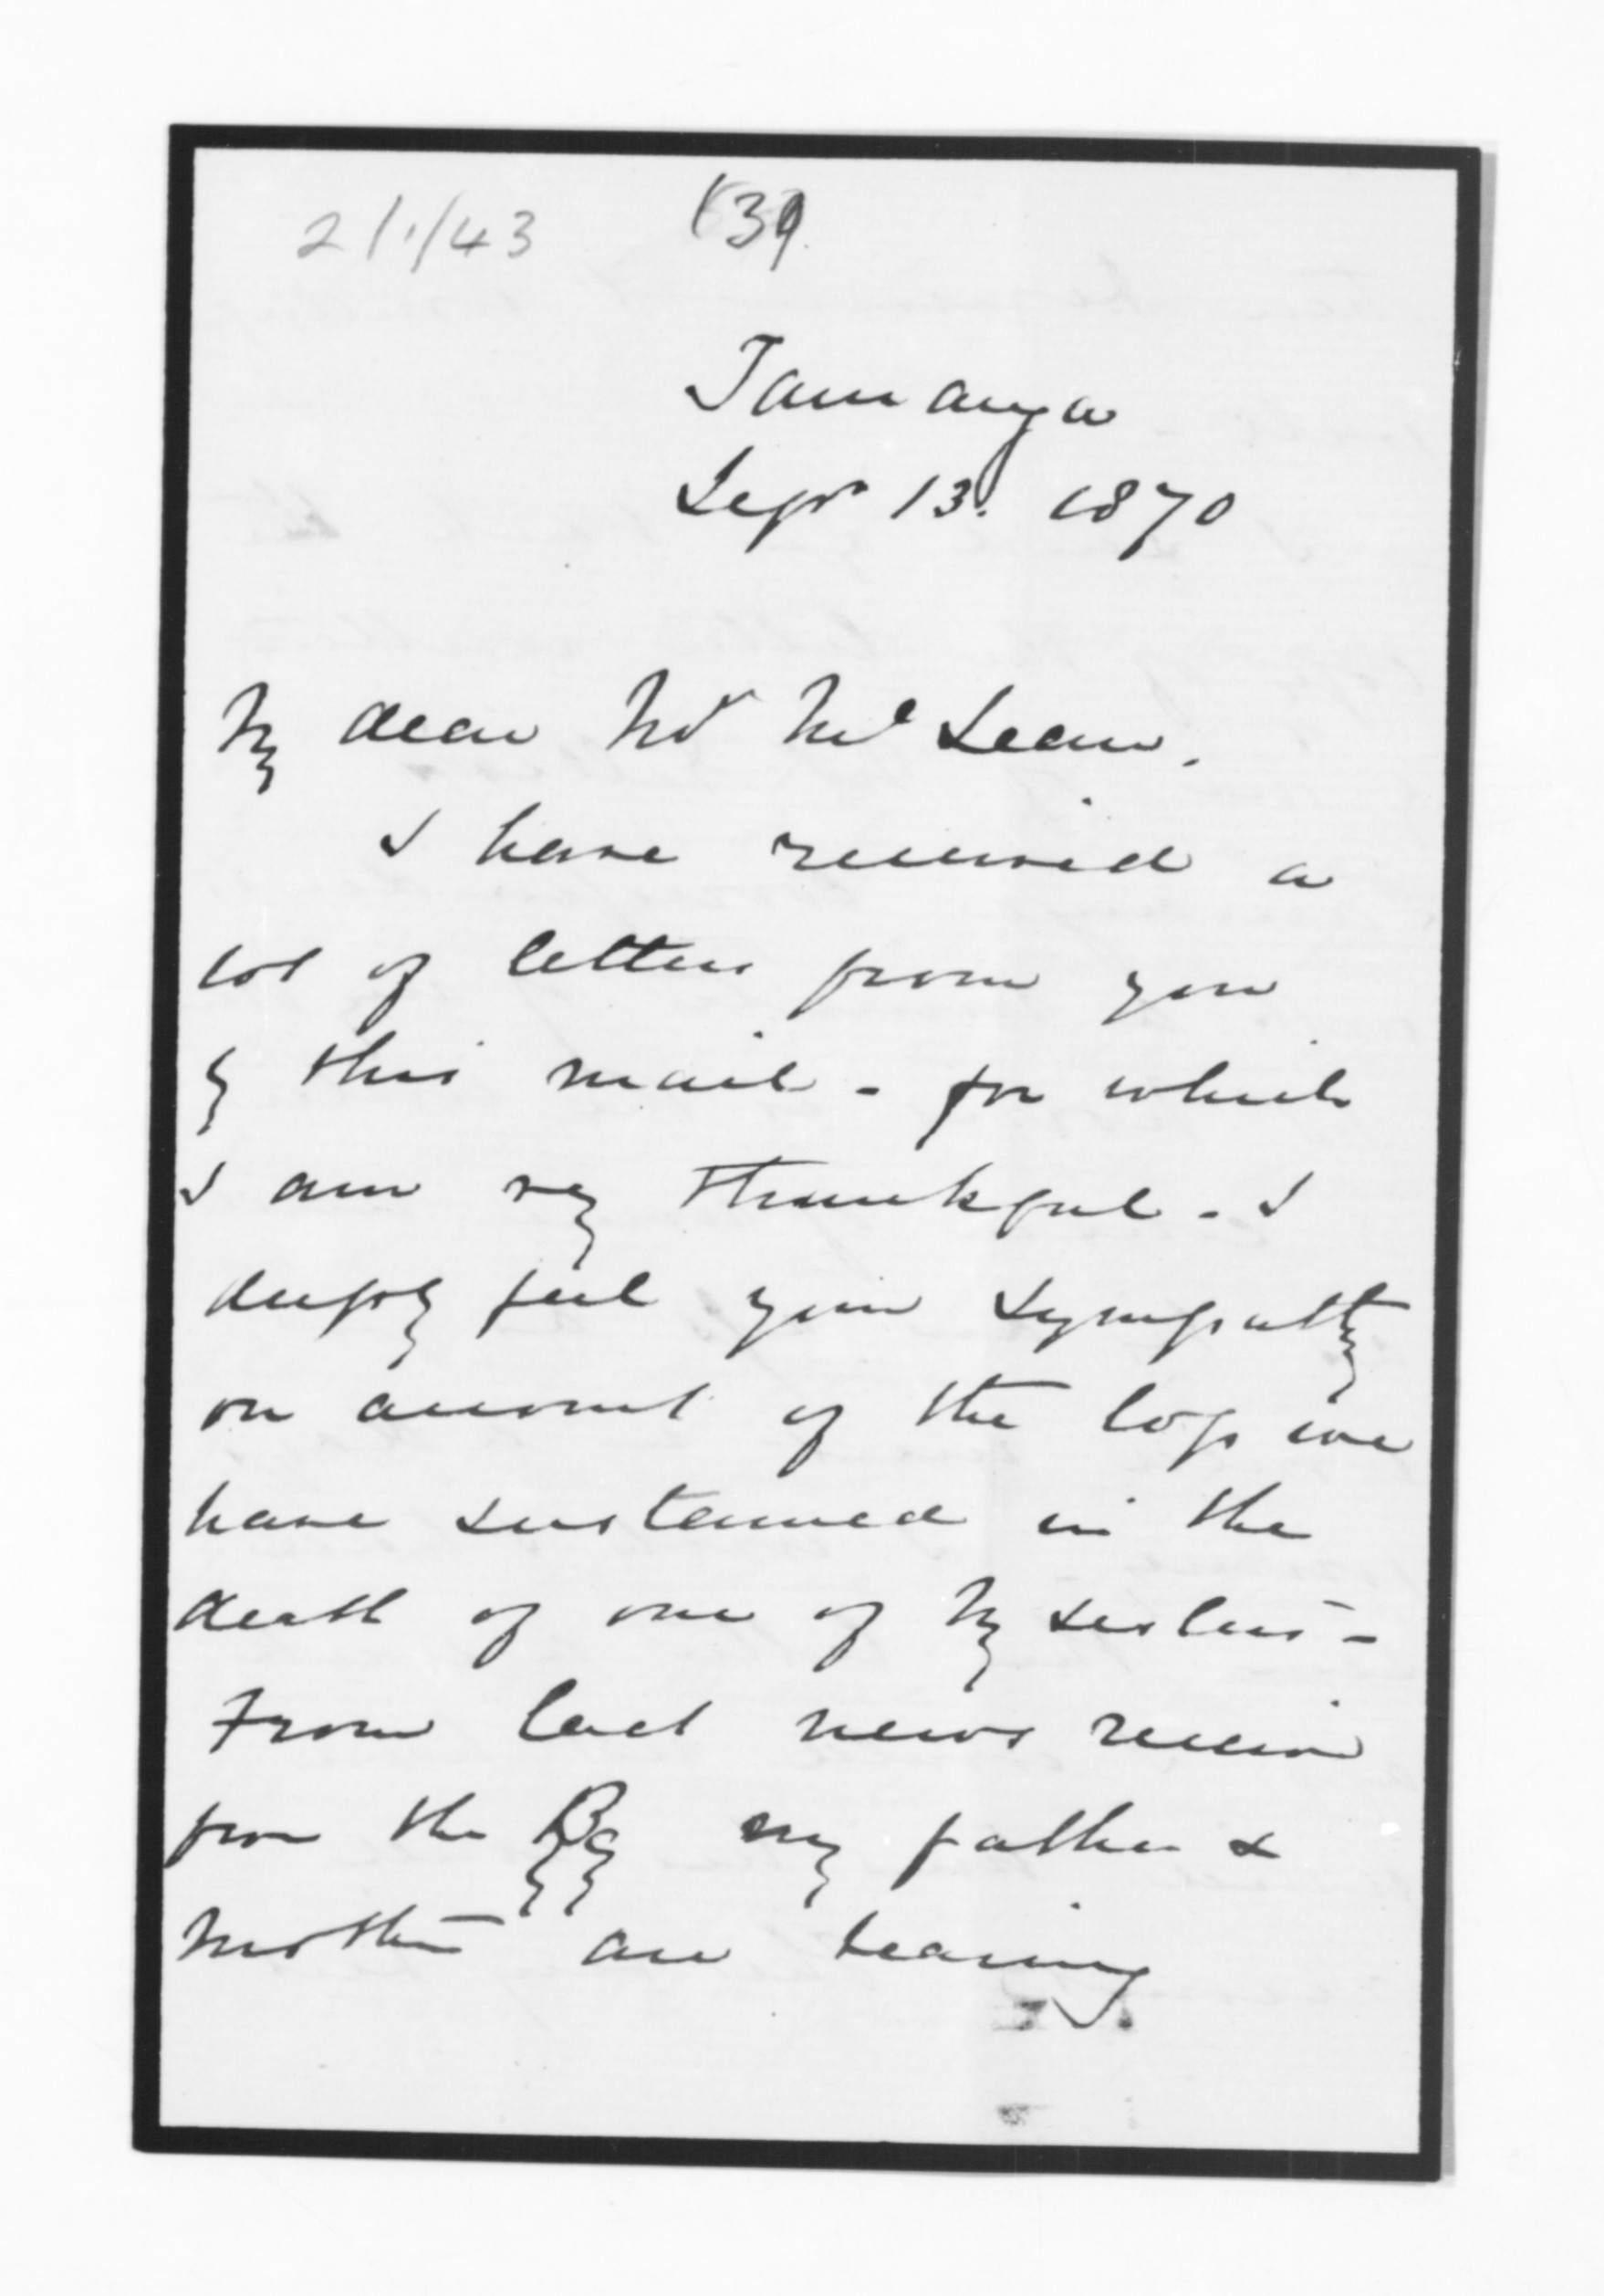 2/1/43
139
Tauranga
Sepr 13. 1870
My dear Mr McLean.
I have received a
lot of letters from you
by this mail - for which
I am very thankful - I
deeply feel your sympathy
on account of the loss we
have sustained in the
death of one of my sisters -
From last news receivd
from the Bay my father &
mother are bearing